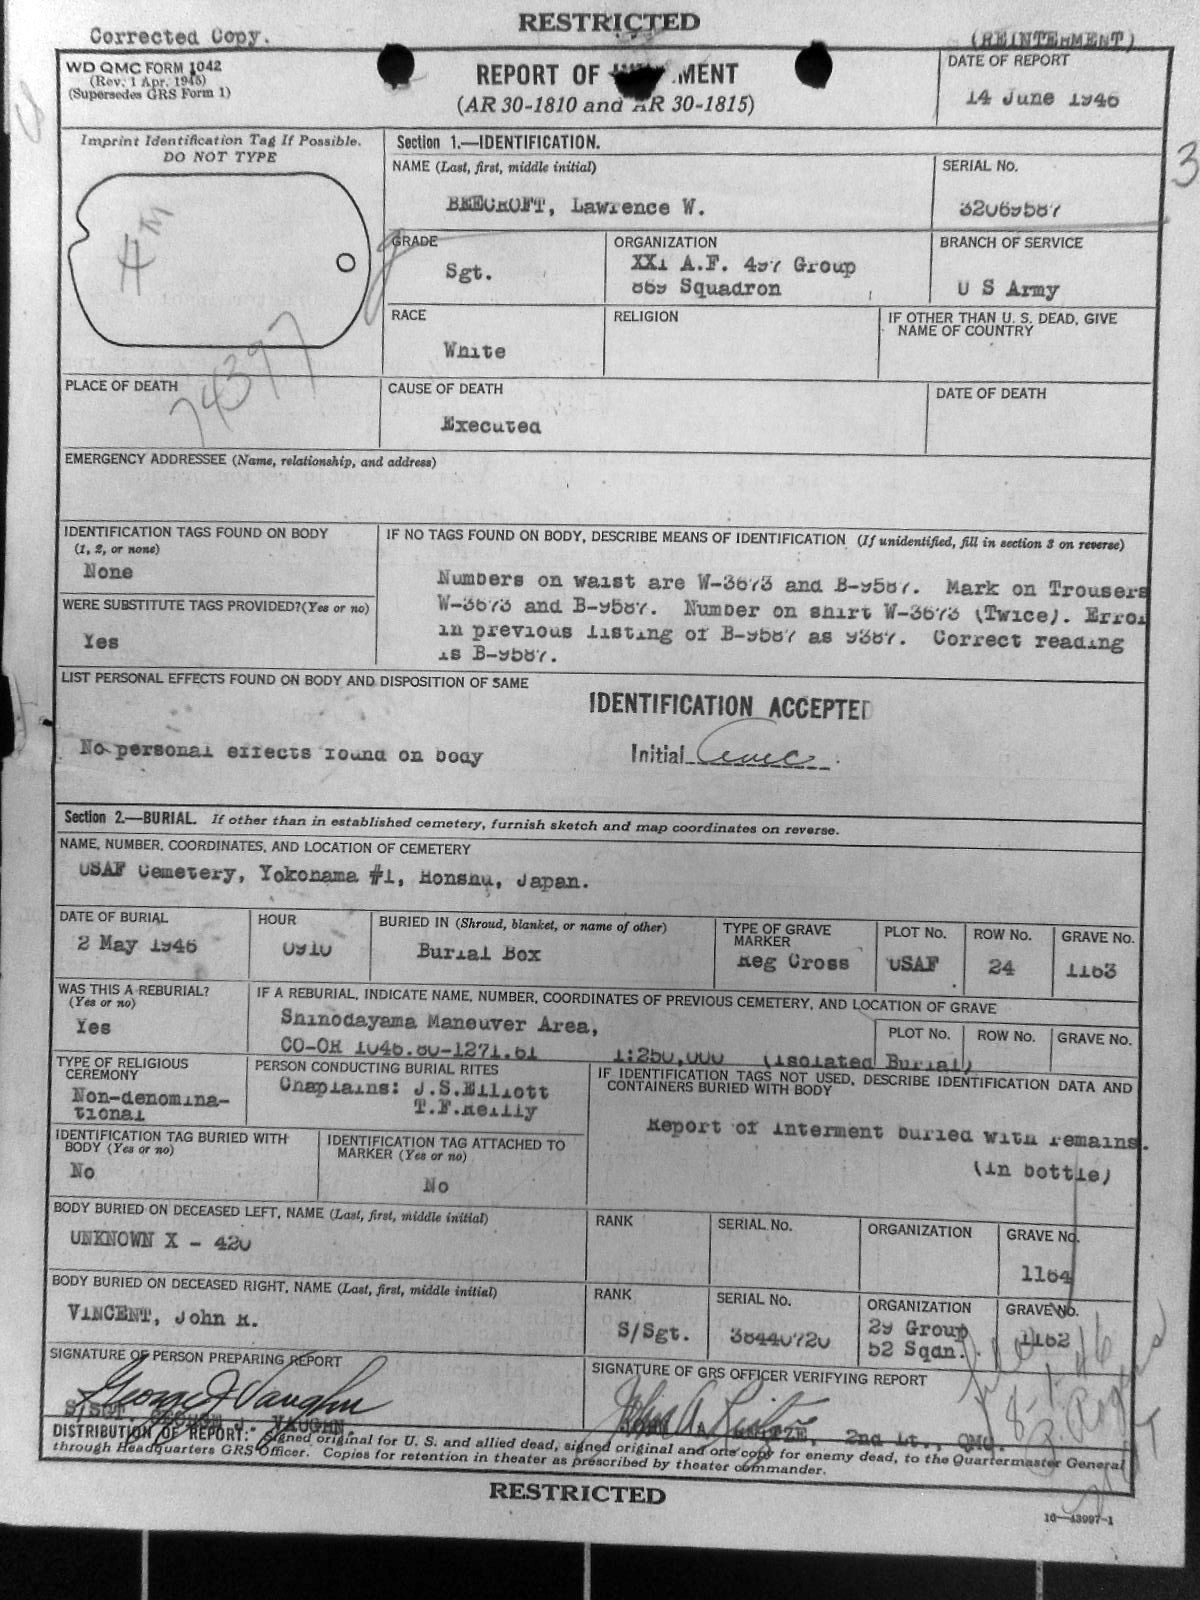 RESTRICTED
Corrected Copy.
(REINTERMENT)
WD QMC FORM 1042
(Rev. 1 Apr. 1945)
(Supersedes GRS Form 1)
REPORT OF MENT
(AR 30-1810 and AR 30-1815)
DATE OF REPORT
14 June 1946
Imprint Identification Tag If Possible.
DO NOT TYPE
Section 1.—IDENTIFICATION.
NAME (Last, first, middle initial)
BEECROFT, Lawrence W.
SERIAL No.
32069587
3
GRADE
Sgt.
ORGANIZATION
XXI A.F. 497 Group
869 Squadron
BRANCH OF SERVICE
U S Army
RACE
White
RELIGION
IF OTHER THAN U. S. DEAD, GIVE
NAME OF COUNTRY
74397
PLACE OF DEATH
CAUSE OF DEATH
Executed
DATE OF DEATH
EMERGENCY ADDRESSEE (Name, relationship, and address)
IDENTIFICATION TAGS FOUND ON BODY
(1, 2, or none)
None
IF NO TAGS FOUND ON BODY, DESCRIBE MEANS OF IDENTIFICATION (If unidentified, fill in section 3 on reverse)
Numbers on waist are W-3673 and B-9587. Mark on Trousers
W-3673 and B-9587. Number on shirt W-3673 (Twice). Error
in previous listing of B-9587 as 9387. Correct reading
is B-9587.
WERE SUBSTITUTE TAGS PROVIDED? (Yes or no)
Yes
LIST PERSONAL EFFECTS FOUND ON BODY AND DISPOSITION OF SAME
No personal effects found on body
IDENTIFICATION ACCEPTED
Initial
Section 2.—BURIAL. If other than in established cemetery, furnish sketch and map coordinates on reverse.
NAME, NUMBER, COORDINATES, AND LOCATION OF CEMETERY
USAF Cemetery, Yokohama #1, Honshu, Japan.
DATE OF BURIAL
2 May 1946
HOUR
0910
BURIED IN (Shroud, blanket, or name of other)
Burial Box
TYPE OF GRAVE
MARKER
Reg Cross
PLOT No.
USAF
ROW No.
24
GRAVE No.
1163
WAS THIS A REBURIAL?
(Yes or no)
Yes
IF A REBURIAL, INDICATE NAME, NUMBER, COORDINATES OF PREVIOUS CEMETERY, AND LOCATION OF GRAVE
Shinodayama Maneuver Area,
CO-OR 1046.80-1271.61 1:250,000 (Isolated Burial)
PLOT No.
ROW No.
GRAVE No.
TYPE OF RELIGIOUS
CEREMONY
Non-denomina-
tional
PERSON CONDUCTING BURIAL RITES
Chaplains: J.S.Elliott
T.F.Reilly
IF IDENTIFICATION TAGS NOT USED, DESCRIBE IDENTIFICATION DATA AND
CONTAINERS BURIED WITH BODY
Report of Interment buried with remains.
(in bottle)
IDENTIFICATION TAG BURIED WITH
BODY (Yes or no)
No
IDENTIFICATION TAG ATTACHED TO
MARKER (Yes or no)
No
BODY BURIED ON DECEASED LEFT, NAME (Last, first, middle initial)
UNKNOWN X - 420
RANK
SERIAL No.
ORGANIZATION
GRAVE No.
1164
BODY BURIED ON DECEASED RIGHT, NAME (Last, first, middle initial)
VINCENT, John R.
RANK
S/Sgt.
SERIAL No.
38440720
ORGANIZATION
29 Group
52 Sqdn.
GRAVE No.
1162
SIGNATURE OF PERSON PREPARING REPORT
George J Vaughn
S/SGT. GEORGE J. VAUGHN.
SIGNATURE OF GRS OFFICER VERIFYING REPORT
2nd Lt., QMC.
DISTRIBUTION OF REPORT: Signed original for U. S. and allied dead, signed original and one copy for enemy dead, to the Quartermaster General
through Headquarters GRS Officer. Copies for retention in theater as prescribed by theater commander.
RESTRICTED
16—43997-1